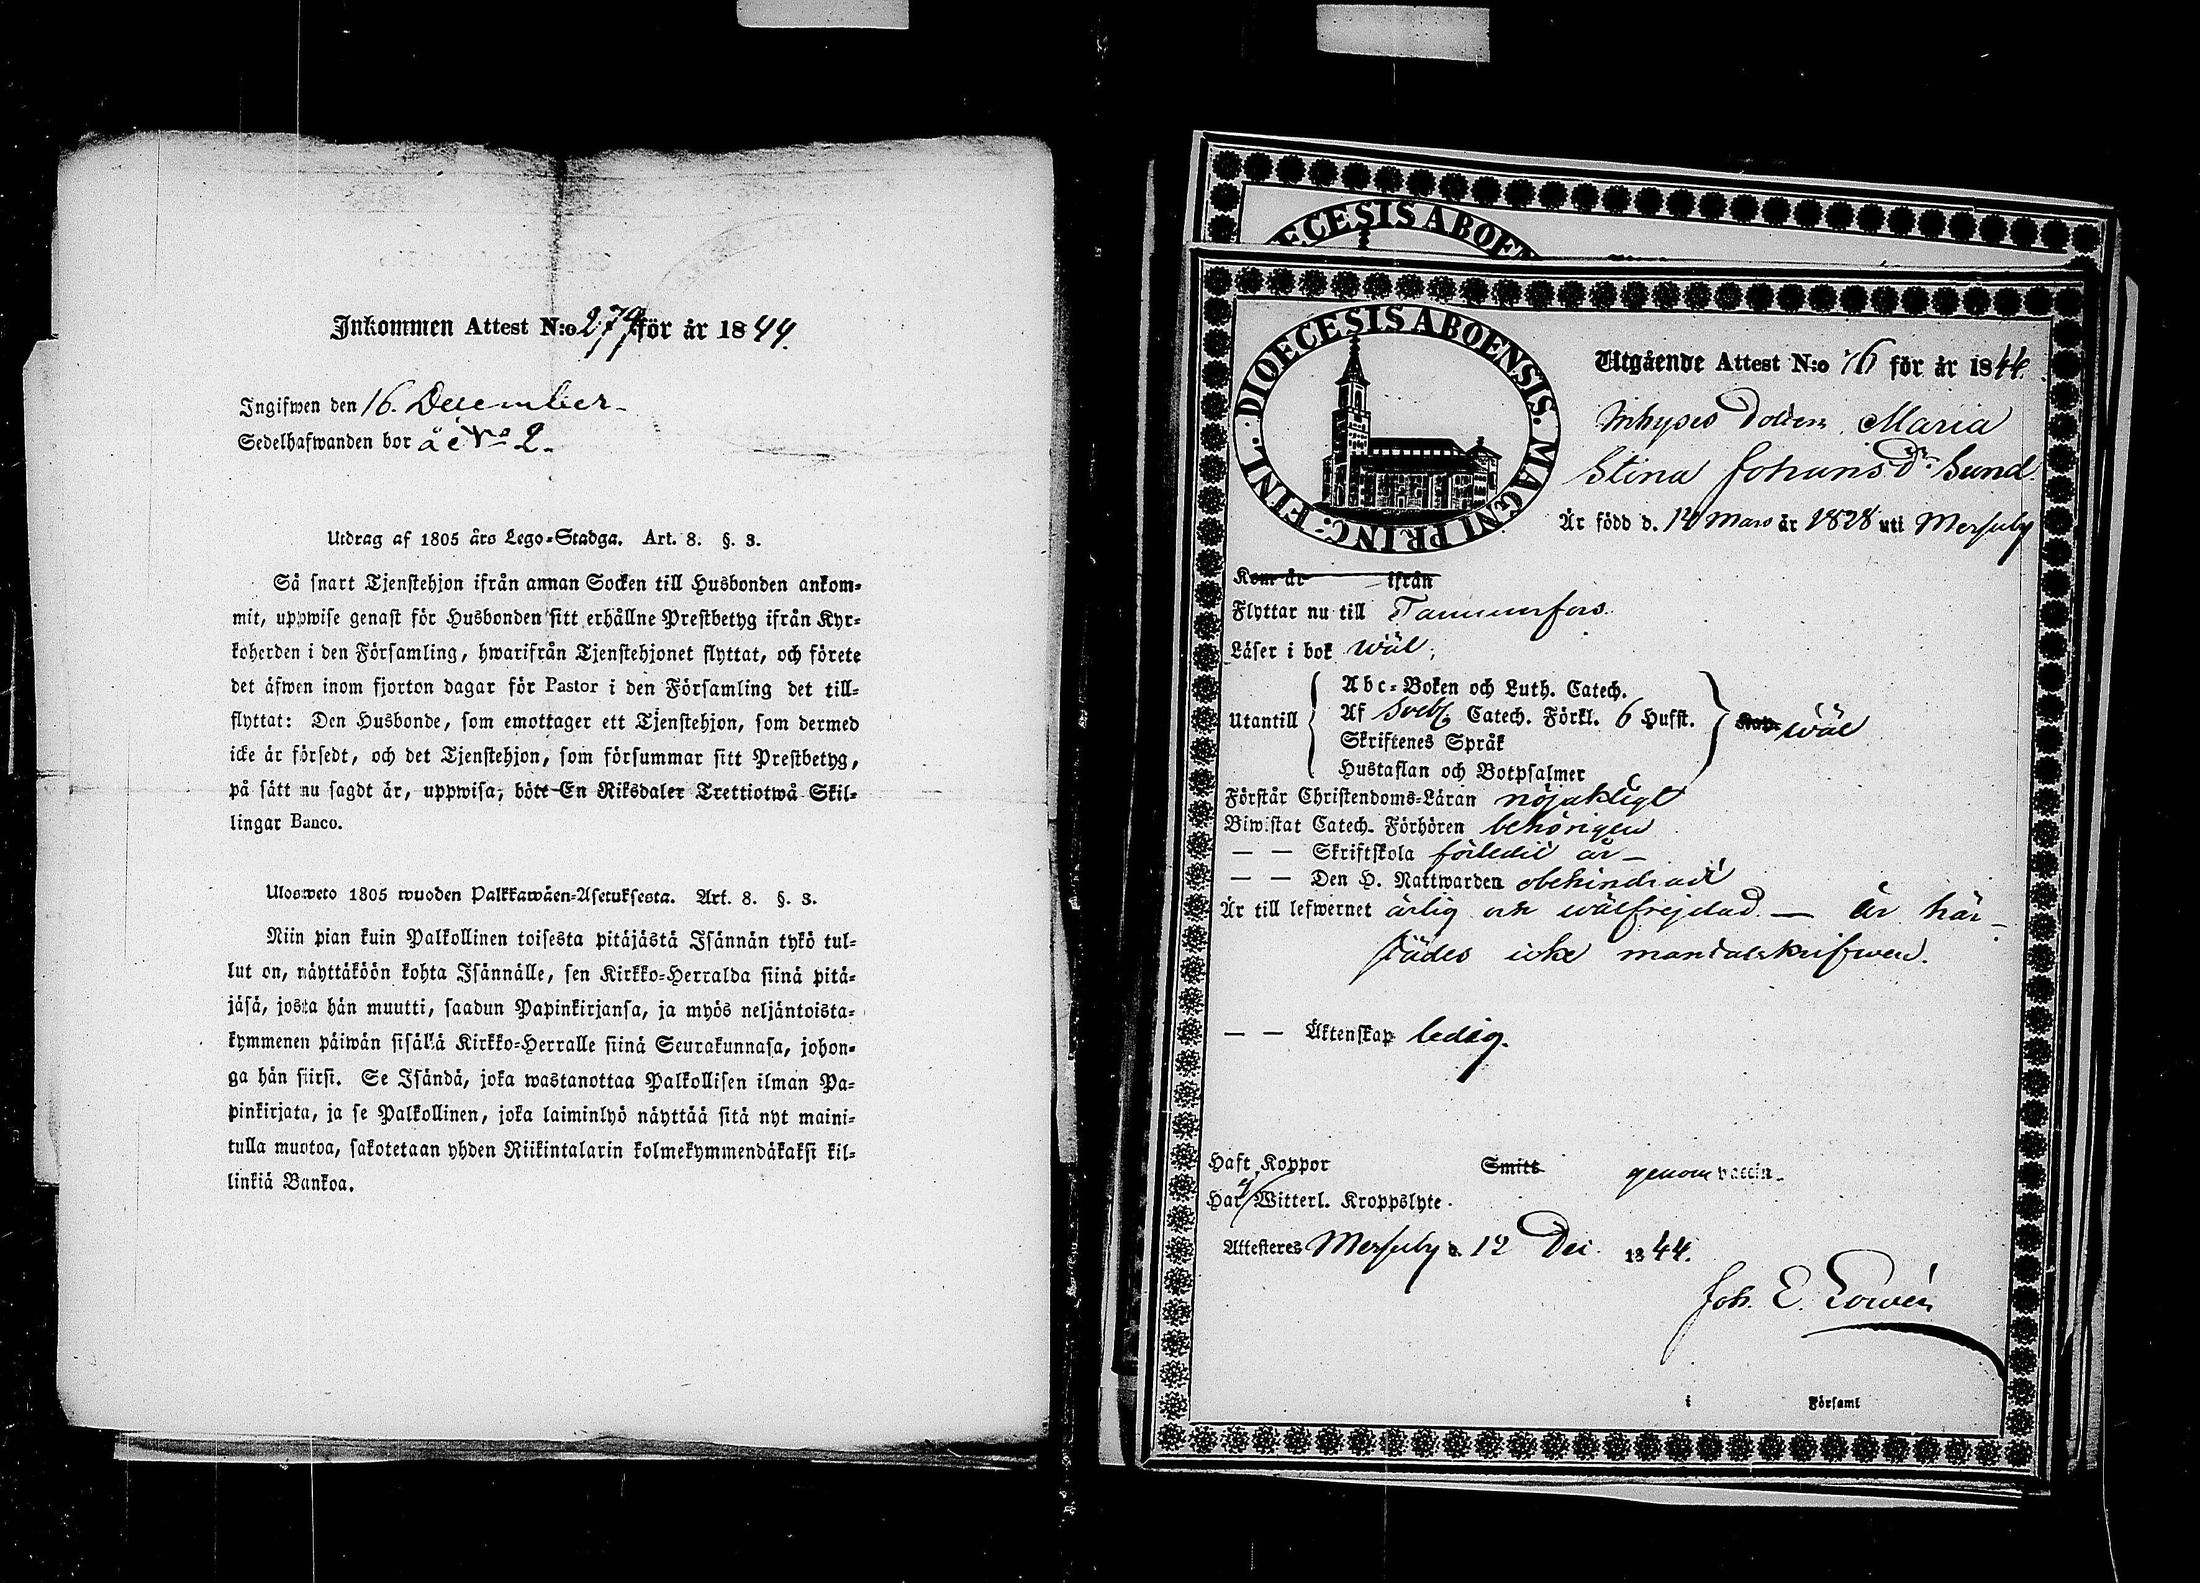 Inkommen Attest N:o 279 för år 1844.
Ingifwen den 16. December
Sedelhafwanden bor å № 2.
Utdrag af 1805 års Lego-Stadga. Art. 8. §. 3.
Så snart Tjenstehjon ifrån annan Socken till Husbonden ankom-
mit, uppwise genast för Husbonden sitt erhållne Prestbetyg ifrån Kyr-
koherden i den Församling, hwarifrån Tjenstehjonet flyttat, och förete
det äfwen inom fjorton dagar för Pastor i den Församling det till-
flyttat: Den Husbonde, som emottager ett Tjenstehjon, som dermed
icke är försedt, och det Tjenstehjon, som försummar sitt Prestbetyg,
på sätt nu sagdt är, uppwisa, böte En Riksdaler Trettiotwå Skil-
lingar Banco.
Ulosweto 1805 wuoden Palkkawäen-Asetuksesta. Art. 8. §. 3.
Niin pian kuin Palkollinen toisesta pitäjästä Isännän tykö tul-
lut on, näyttäköön kohta Isännälle, sen Kirkko-Herralda siinä pitä-
jäsä, josta hän muutti, saadun Papinkirjansa, ja myös neljäntoista-
kymmenen päiwän sisällä Kirkko-Herralle siinä Seurakunnasa, johon-
ga hän siirsi. Se Isändä, joka wastanottaa Palkollisen ilman Pa-
pinkirjata, ja se Palkollinen, joka laiminlyö näyttää sitä nyt maini-
tulla muotoa, sakotetaan yhden Riikintalarin kolmekymmendäkaksi kil-
linkiä Bankoa.
ECESIS ABOEN
DIOECESIS ABOENSIS. MAGNI PRINC: FINL.
Utgående Attest N:o 76 för år 1844.
Inhyses Dottern Maria
Stina Johans Dr Sund.
Är född d. Mars år 1828 uti Messuby
Kom år ifrån
Flyttar nu till Tammerfors.
Läser i bok wäl,
Utantill
Abc-Boken och Luth. Catech.
Af Sveb. Catech. Förkl. 6 Hufst.
Skriftenes Språk
Hustaflan och Botpsalmer
wäl
Förstår Christendoms-Läran nöjaktigt
Biwistat Catech. Förhören behörigen
— — Skriftskola förledit år —
— — Den H. Nattwarden obehindrad
Är till lefwernet ärlig och wälfrejdad. — Är här-
städes icke mantalskrifwen.
— — Äktenskap ledig.
Haft Koppor Smitt genom vaccin.
Har ej Witterl. Kroppslyte.
Attesteres Messuby d. 12 Dec. 1844.
Joh. E. Lowén
i Församl